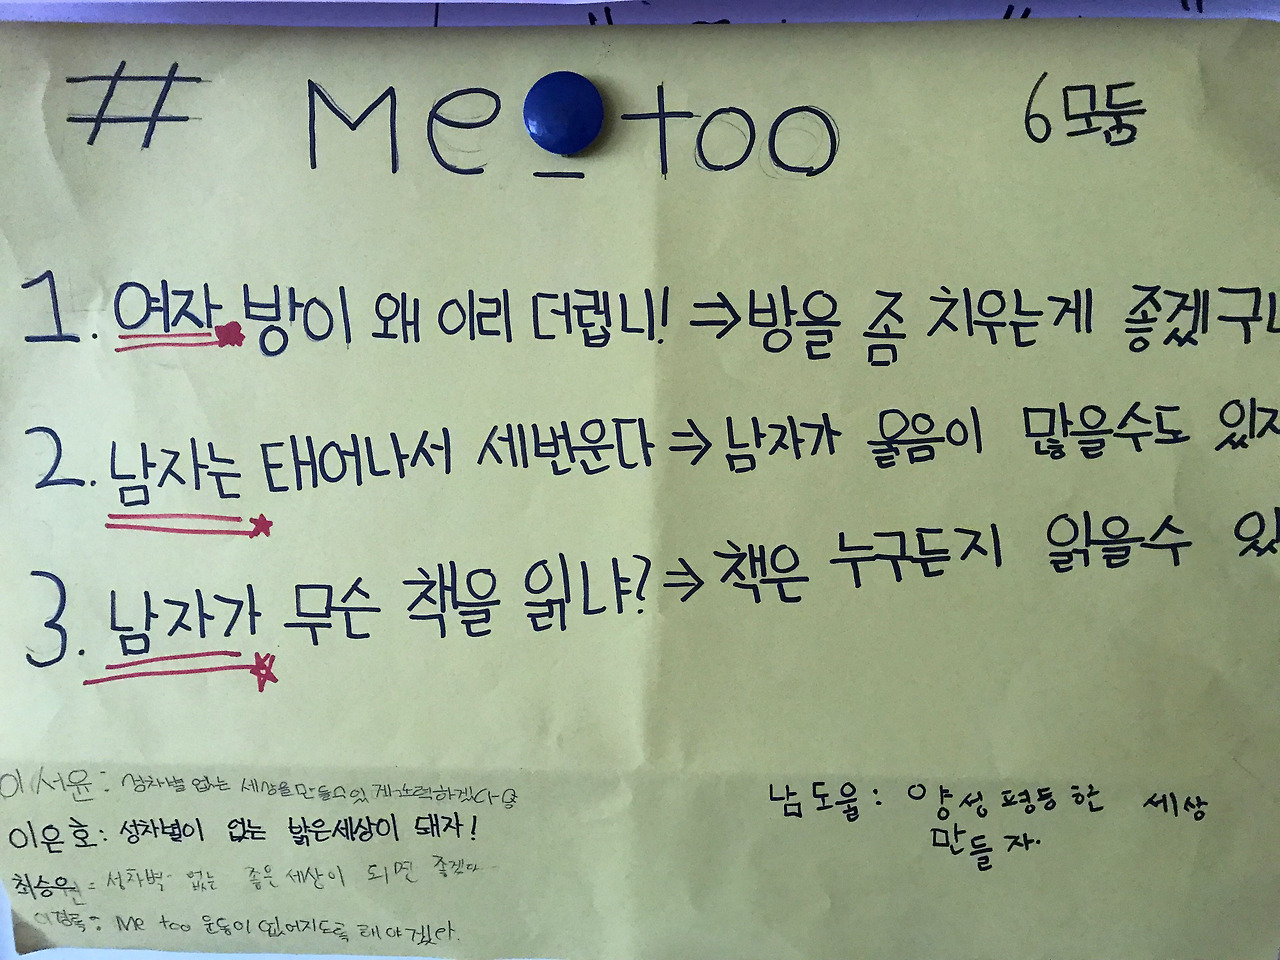 # Me_too
6모둠
1. 여자 방이 왜 이리 더럽니! ⇒ 방을 좀 치우는게 좋겠구나
2. 남자는 태어나서 세번운다 ⇒ 남자가 욺음이 많을수도 있지
3. 남자가 무슨 책을 읽냐? ⇒ 책은 누구든지 읽을수 있
이서윤: 성차별 없는 세상을 만들수있게 노력하겠다
이은호: 성차별이 없는 밝은세상이 돼자!
최승원: 성차별 없는 좋은 세상이 되면 좋겠다
이경록: Me too 운동이 없어지도록 해야겠다.
남도율: 양성 평등한 세상
만들자.